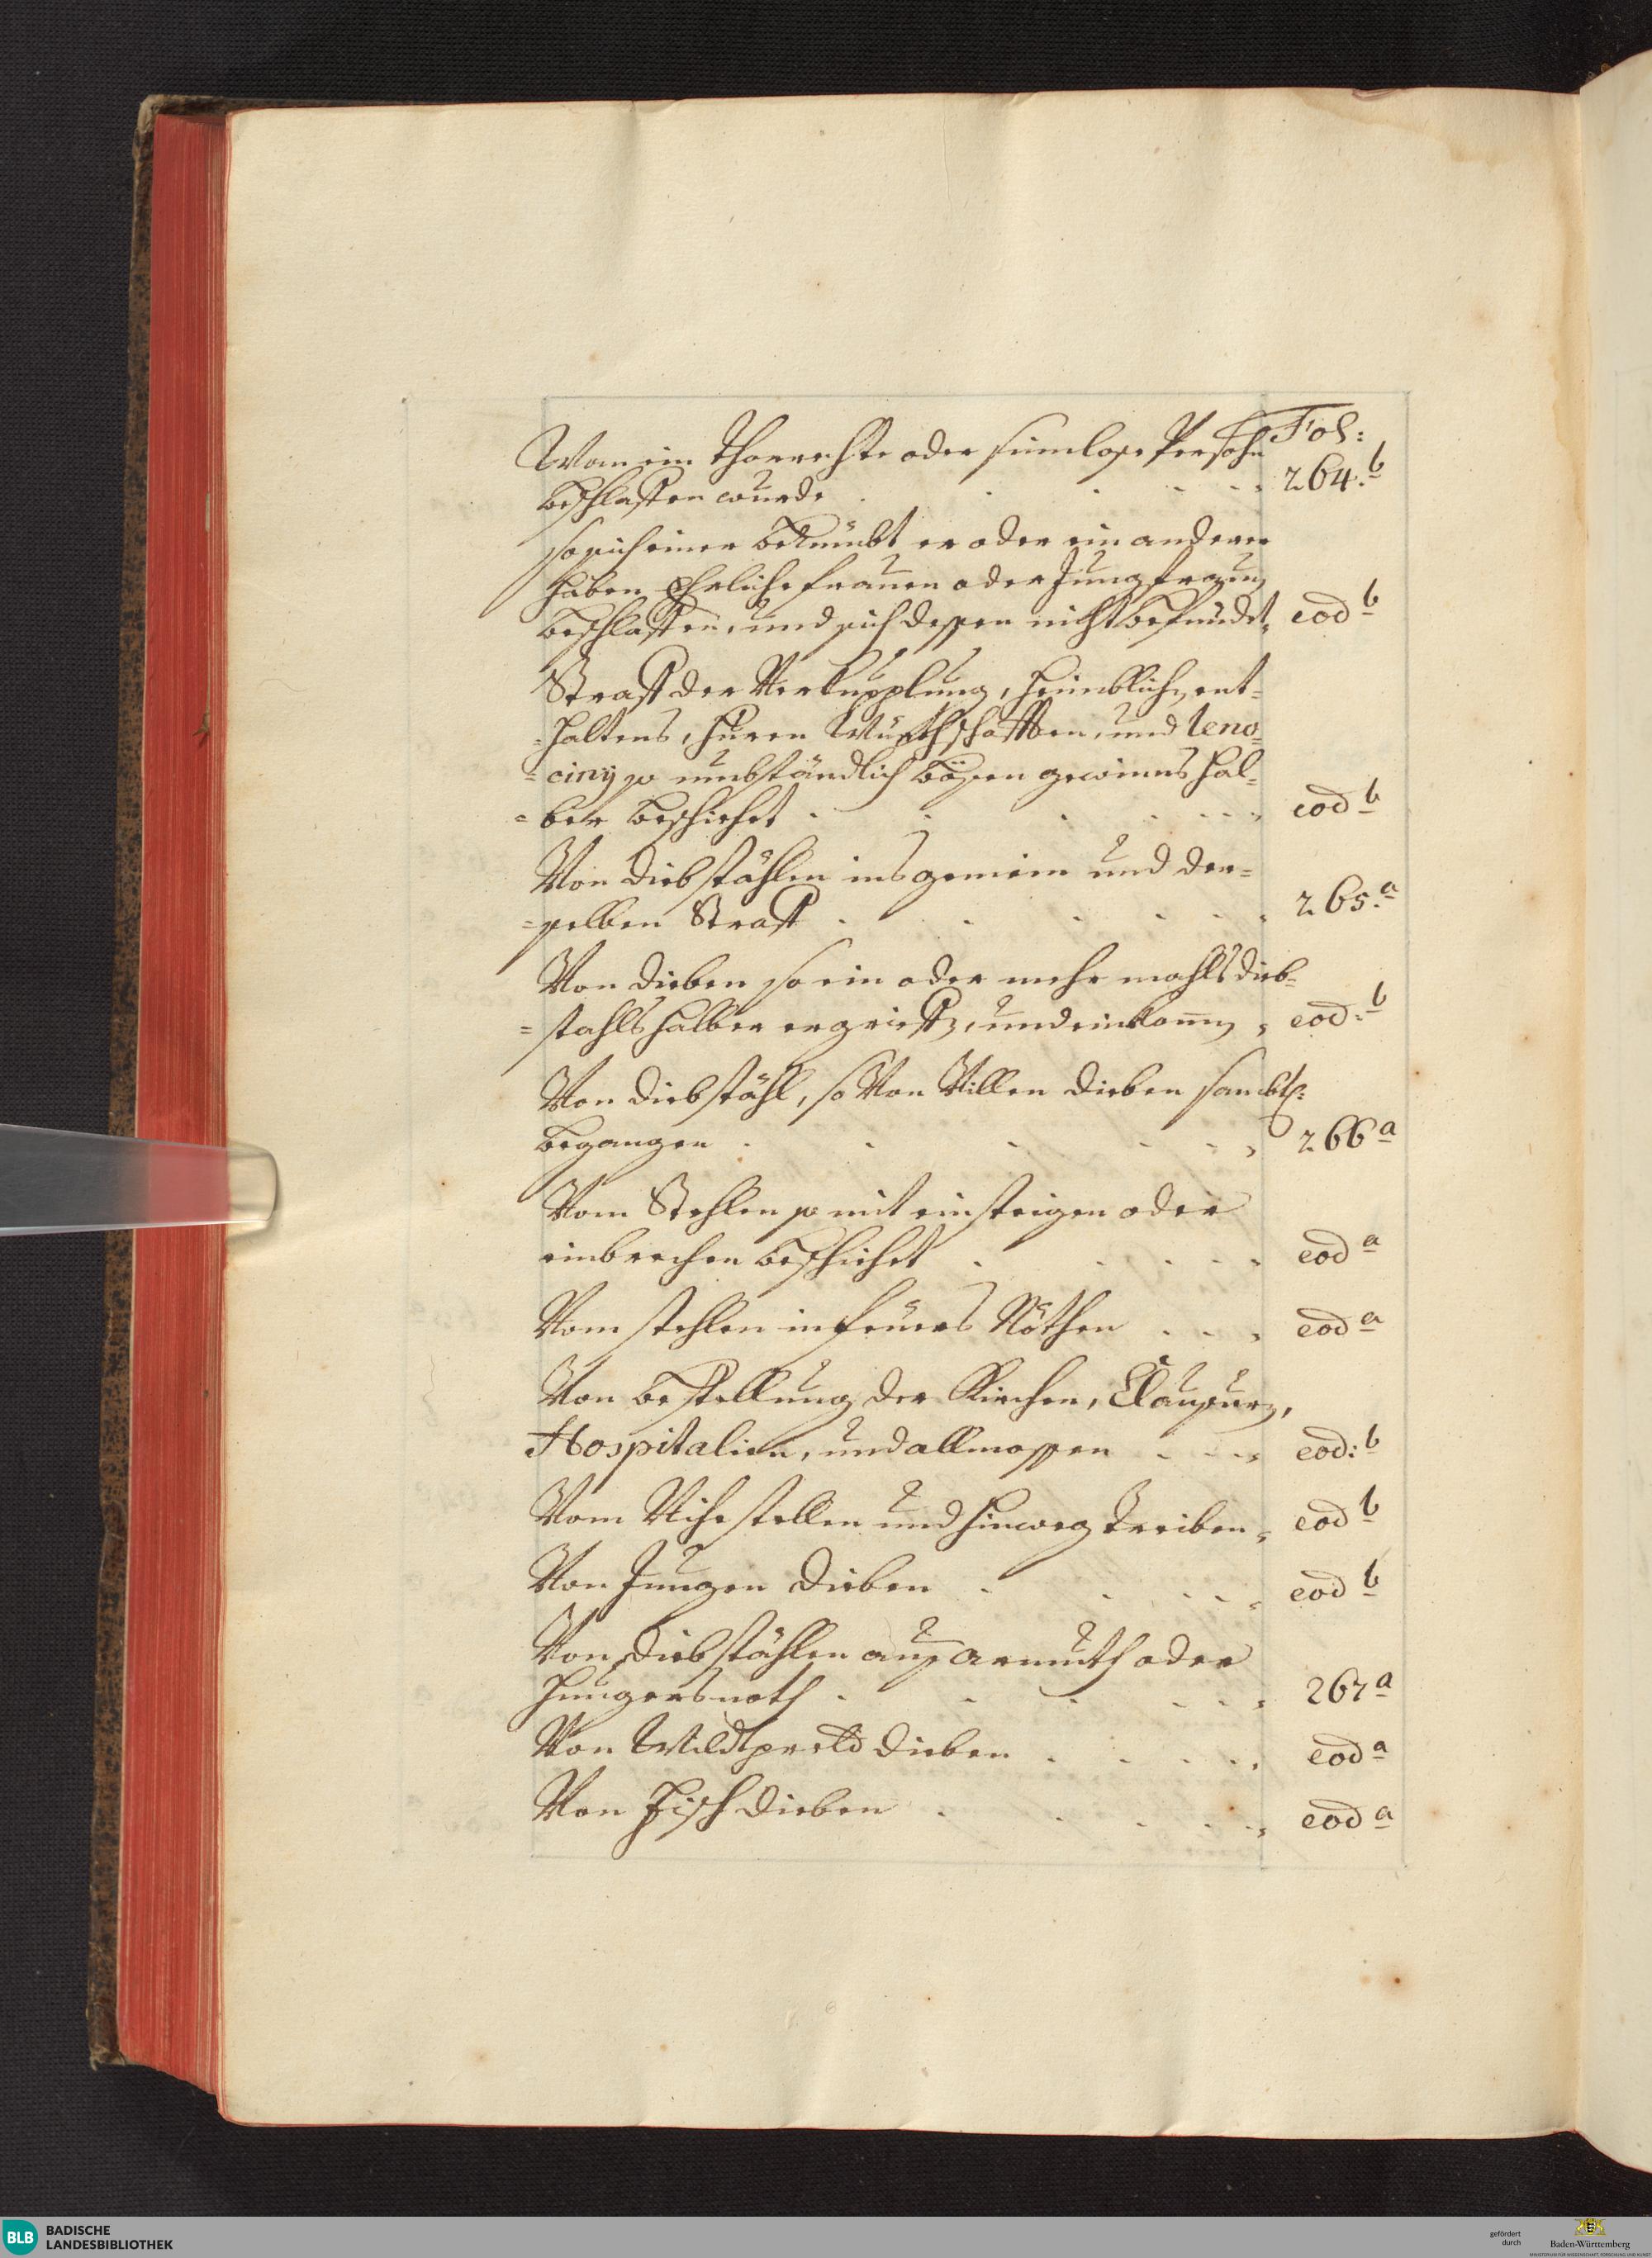 Fol:
Wan ein thorrechte oder sinnlose Persohn
beschlaffen wurde 264.b
so sich einer berümbt er oder ein anderer
haben Ehrliche frauen oder Jungfrauen
beschlaffen, und sich dessen nicht befündt, eod b
Straff der Verkupplung, heimblichen ent=
=haltens, huren Würthschafften, und leno=
=cinÿ so umbständlich bösen gewinns hal=
=ber beschiehet eod b
Von Diebstählen ins gemein und der=
=selben Straff 265.a
Von dieben so ein oder mehr mahls dieb=
=stahls halber ergriffen, und einkommen, eod: b
Von diebstähl, so Von Villen dieben
begangen 266 a
Vom Stehlen so mit einsteigen oder
einbrechen beschiehet eod a
Vom stehlen in feuers Nöthen eod a
Von bestellung der Kirchen, Clausuren,
Hospitalien, und allmossen eod: b
Vom Vihe stellen und hinweg treiben, eod b
Von Jungen dieben eod b
Von diebstählen auß armuth oder
hungersnoth 267 a
Von Wildtpreth dieben eod a
Von Fisch dieben eod a
BLB
BADISCHE
LANDESBIBLIOTHEK
gefördert
durch
Baden-Württemberg